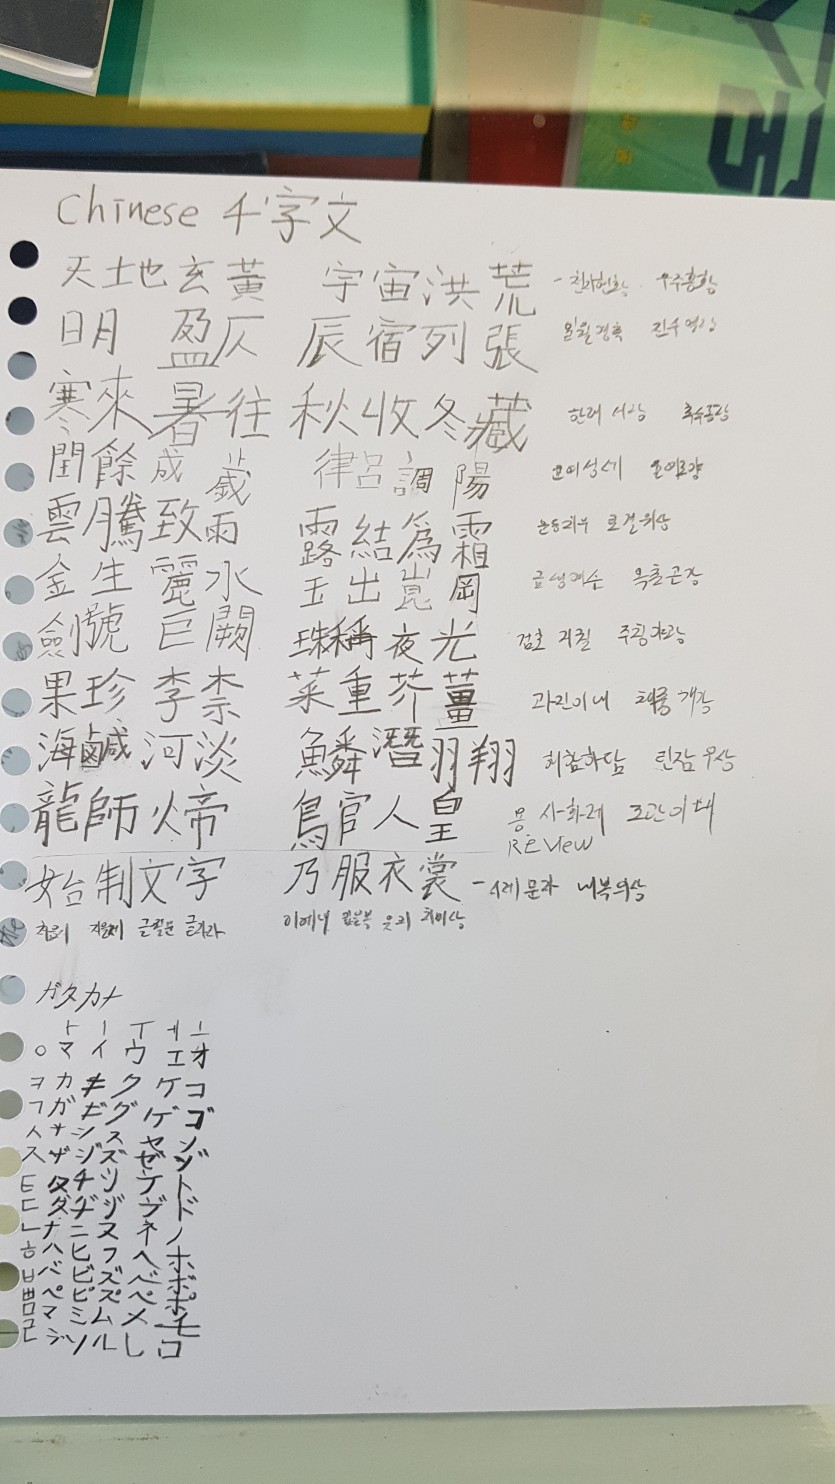 Chinese 千字文
天土地玄黃 宇宙洪荒 - 천지현황 우주홍황
日月 盈仄 辰宿列張 일월영측 진수열장
寒來暑往 秋收冬藏 한래서왕 추수동장
閏餘成歲 律呂調陽
雲騰致雨 露結爲霜 운등치우 로결위상
金生麗水 玉出崑岡 금생려수 옥출곤강
劍號巨闕 珠稱夜光 검호거궐 주칭야광
果珍李柰 菜重芥薑 과진이내 채중개강
海鹹河淡 鱗潛羽翔 해함하담 린잠우상
龍師火帝 鳥官人皇 용사화제
REVIEW
始制文字 乃服衣裳 - 시제문자 내복의상
이에내 입을복 옷의 치마상
ガタカナ
ㅏ ㅣ ㅜ ㅔ ㅗ
ㅇ マ イ ウ エ オ
ㅋ カ キ ク ケ コ
ㄱ ガ ギ グ ゲ ゴ
ㅅ サ シ ス セ ソ
ス ザ ジ ズ ゼ ゾ
ㅌ タ チ ツ テ ト
ㄷ ダ ヂ ヅ デ ド
ㄴ ナ ニ ヌ ネ ノ
ㅎ ハ ヒ フ ヘ ホ
ㅂ バ ビ ズ ベ ボ
ㅃ ペ ピ ズ ペ ポ
ㅁ マ ミ ム メ モ
ㄹ ラ リ ル レ ロ